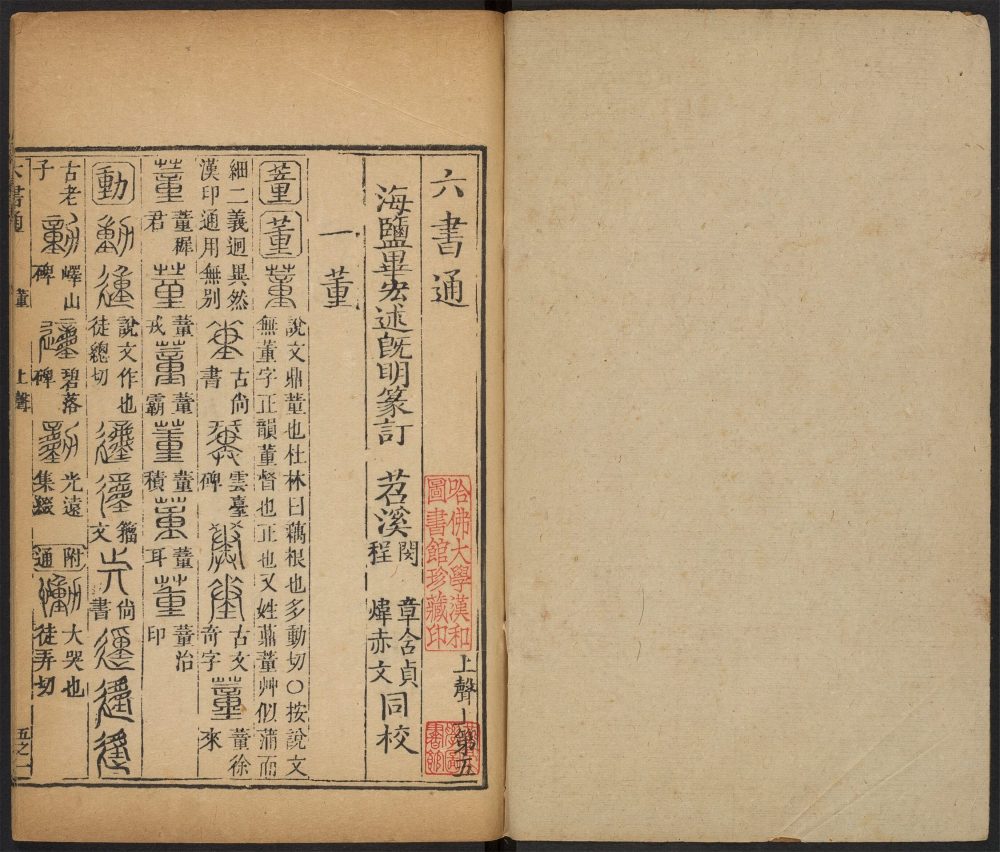 六書通 上聲上第五
哈佛大學漢和
圖書館珍藏印
海鹽畢宏述既明篆訂 苕溪 閔章含貞 程煒赤文 同校
一董
蕫 董 說文鼎蕫也杜林曰藕根也多動切○按說文
無董字正韻董督也正也又姓鼎董艸似蒲而
細二義迥異然
漢印通用無別 古尚書 雲臺碑 古文奇字 董徐來
董樨君 董戎 董霸 董積 董耳 董治印
動 說文作也徒總切 籀文 尚書
古老子 嶧山碑 碧落碑 光遠集綴 附通 大哭也徒弄切
六書通 董 上聲 五之一